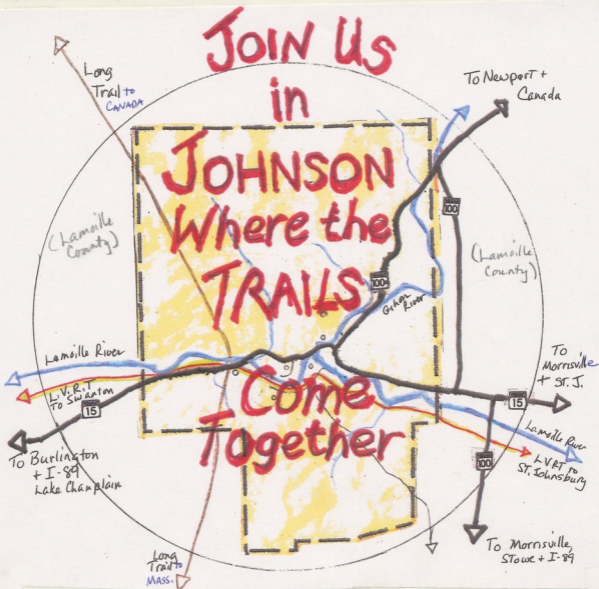 JOIN US
in
JOHNSON
Where the
TRAILS
Come
Together
Long
Trail to
CANADA
To Newport +
Canada
100
(Lamoille
County)
(Lamoille
County)
100
Gihon
River
Lamoille River
L.V.R.T
To Swanton
15
To Burlington
+ I-89
Lake Champlain
To
Morrisville
+ ST. J.
15
Lamoille River
LVRT to
ST. Johnsbury
100
To Morrisville,
Stowe + I-89
Long
Trail to
MASS.